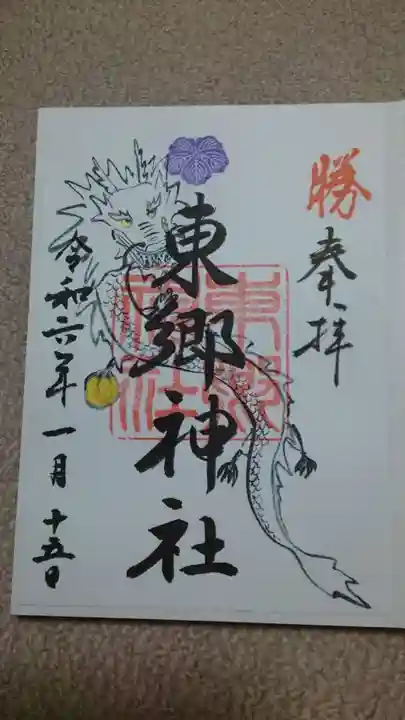 勝
奉拝
東郷神社
東郷神社
令和六年一月十五日